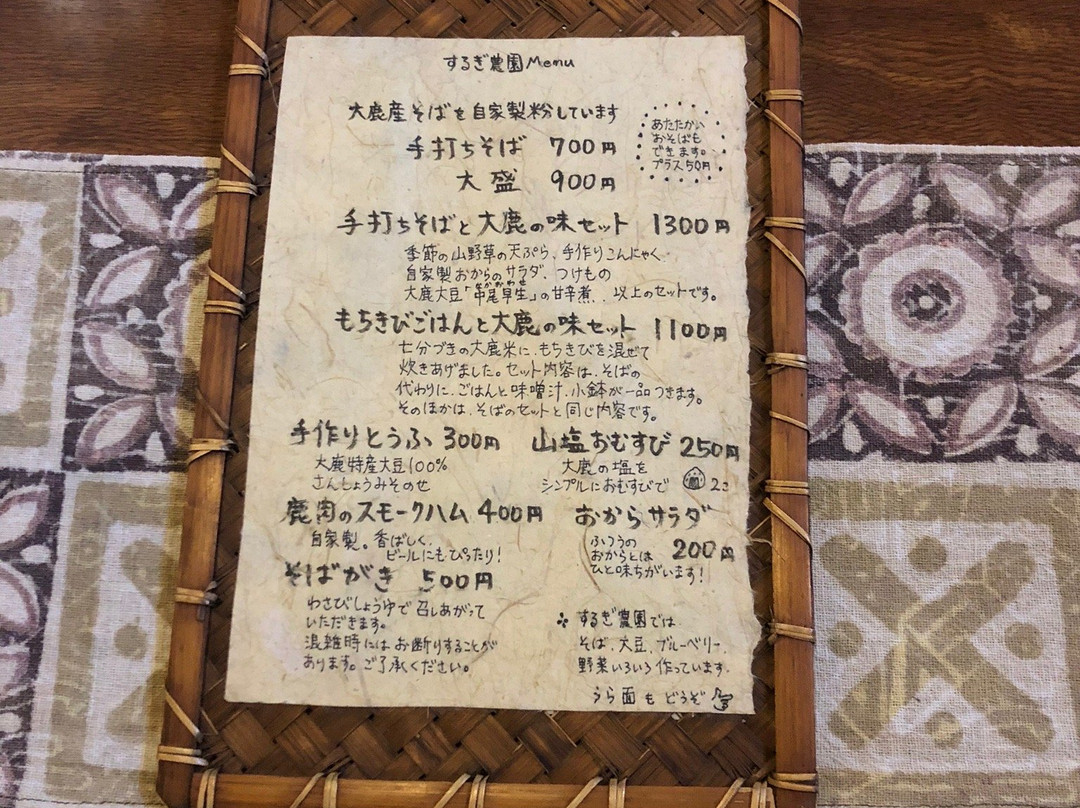 するぎ農園Menu
大鹿産そばを自家製粉しています
手打ちそば 700円
大盛 900円
あたたかい
おそばも
できます。
プラス50円
手打ちそばと大鹿の味セット 1300円
季節の山野草の天ぷら、手作りこんにゃく
自家製おからのサラダ、つけもの
なかおわせ
大鹿大豆「中尾早生」の甘辛煮、以上のセットです。
もちきびごはんと大鹿の味セット 1100円
七分づきの大鹿米に、もちきびを混ぜて
炊きあげました。セット内容は、そばの
代わりに、ごはんと味噌汁、小鉢が一品つきます。
そのほかは、そばのセットと同じ内容です。
手作りとうふ 300円
大鹿特産大豆100%
さんしょうみそのせ
山塩おむすび 250円
大鹿の塩を
シンプルにおむすびで 2コ
鹿肉のスモークハム 400円
自家製。香ばしく、
ビールにもぴったり!
おからサラダ
200円
ふつうの
おからとは
ひと味ちがいます!
そばがき 500円
わさびしょうゆで召しあがって
いただきます。
混雑時にはお断りすることが
あります。ご了承ください。
するぎ農園では
そば、大豆、ブルーベリー、
野菜いろいろ作っています。
うら面もどうぞ